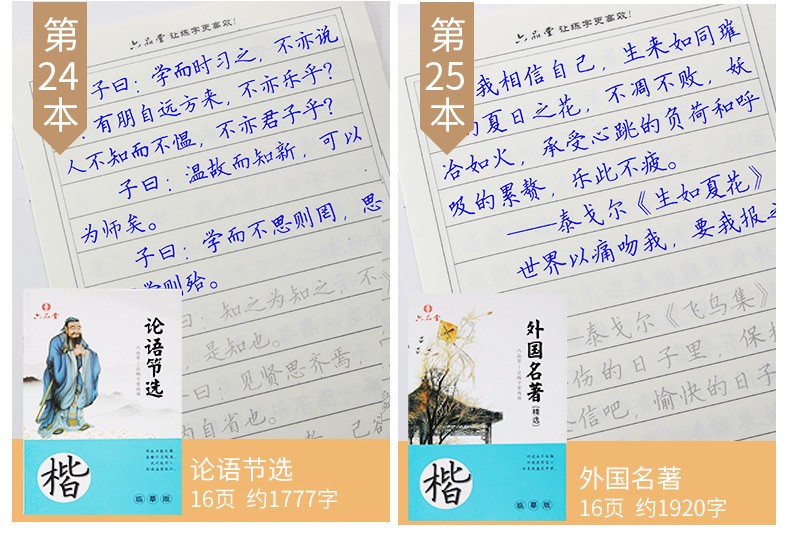 第
24
本
六品堂 让练字更高效!
子曰：学而时习之，不亦说
有朋自远方来，不亦乐乎?
人不知而不愠，不亦君子乎?
子曰：温故而知新，可以
为师矣。
子曰：学而不思则罔，思
学则殆。
曰：知之为知之，不
，是知也。
曰：见贤思齐焉，
内自省也。
六品堂
论语节选
楷
临摹版
论语节选
16页 约1777字
第
25
本
六品堂 让练字更高效!
我相信自己，生来如同璀
的夏日之花，不凋不败，妖
冶如火，承受心跳的负荷和呼
吸的累赘，乐此不疲。
——泰戈尔《生如夏花》
世界以痛吻我，要我报之
—泰戈尔《飞鸟集》
伤的日子里，保持
信吧，愉快的日子
六品堂
外国名著
[精选]
楷
临摹版
外国名著
16页 约1920字